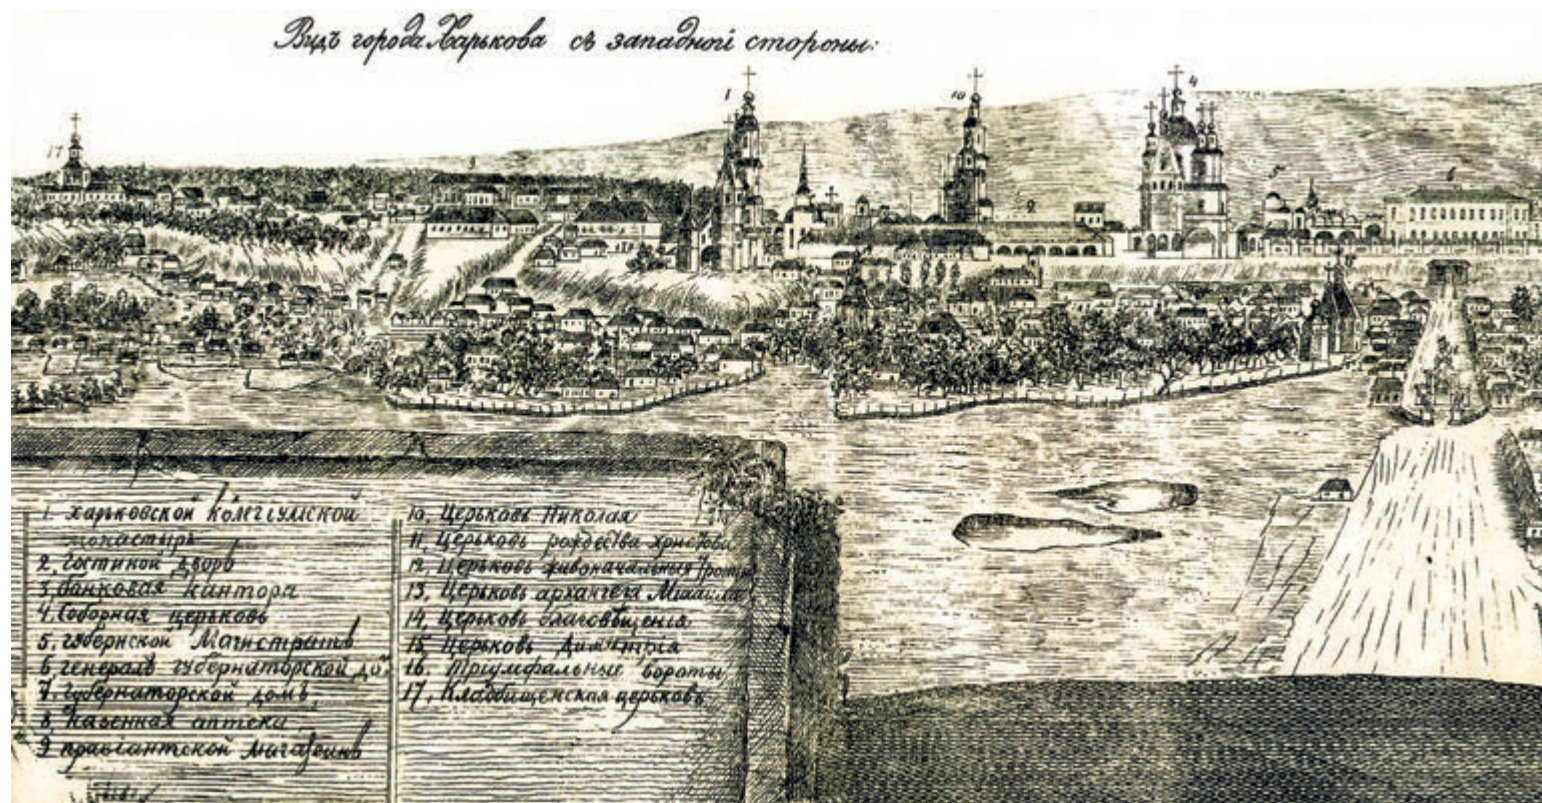 Видъ города Харькова съ западной стороны:
17
1
10
4
2
5
6
1. харьковской колегіумской
монастырь
2, гостиной дворъ
3, банковая кантора
4, Соборная церьковь
5, губернской Магистратъ
6 генералъ губернаторской до
7, губернаторской домъ,
8, казенная аптека,
9 правіантской Магазеинъ
10, Церьковь Николая
11, Церьковь рождества христова
12, Церьковь живоначальныя Троицы
13, Церьковь архангела Михаила
14, Церьковь благовѣщенія
15, Церьковь Димитрія
16, Триумфальные вороты
17, Кладбищенская церьковь